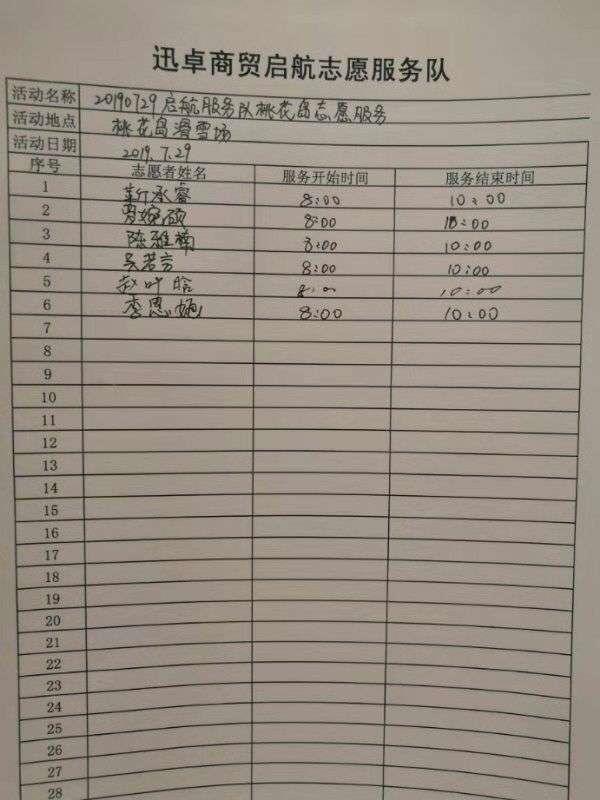 迅卓商贸启航志愿服务队
活动名称 20190729启航服务队桃花岛志愿服务
活动地点 桃花岛滑雪场
活动日期 2019.7.29
序号 志愿者姓名 服务开始时间 服务结束时间
1 靳承睿 8:00 10:00
2 8:00 10:00
3 陈雅楠 8:00 10:00
4 吴若言 8:00 10:00
5 赵叶晗 8:00 10:00
6 李思娴 8:00 10:00
7
8
9
10
11
12
13
14
15
16
17
18
19
20
21
22
23
24
25
26
27
28